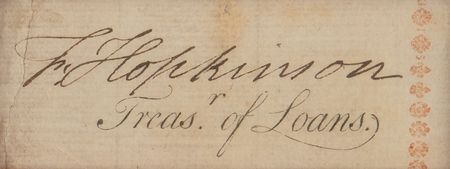 F. Hopkinson
Treas.r of Loans.